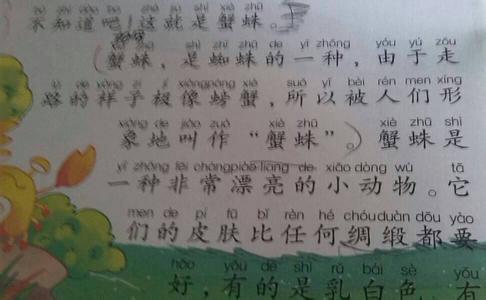 不知道吧!这就是蟹蛛。
xiè zhū shì zhī zhū de yì zhǒng yóu yú zǒu
(蟹蛛,是蜘蛛的一种,由于走
lù de yàng zi jí xiàng páng xiè suǒ yǐ bèi rén men xíng
路的样子极像螃蟹,所以被人们形
xiàng de jiào zuò xiè zhū xiè zhū shì
象地叫作“蟹蛛”。)蟹蛛是
yì zhǒng fēi cháng piào liang de xiǎo dòng wù tā
一种非常漂亮的小动物。它
men de pí fū bǐ rèn hé chóu duàn dōu yào
们的皮肤比任何绸缎都要
hǎo yǒu de shì rǔ bái sè yǒu
好,有的是乳白色,有